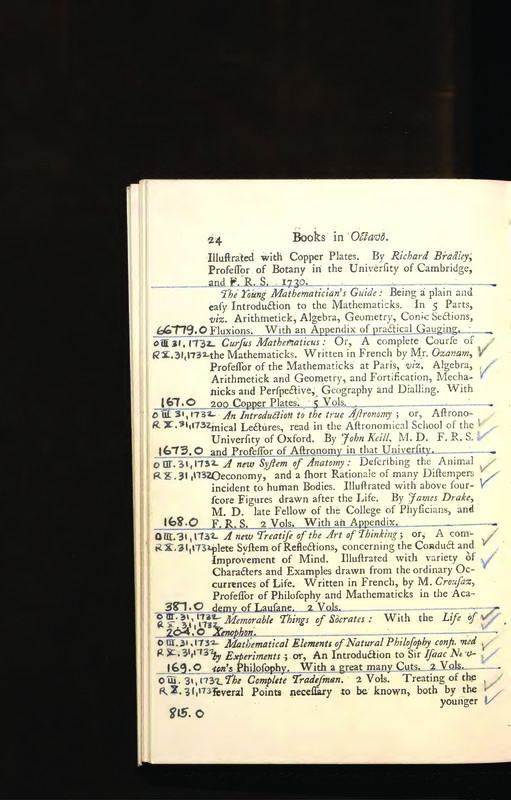 24 Books in Octavo.
Illuſtrated with Copper Plates. By Richard Bradley,
Profeſſor of Botany in the Univerſity of Cambridge,
and F. R. S. 1730.
The Young Mathematician's Guide: Being a plain and
eaſy Introduction to the Mathematicks. In 5 Parts,
viz. Arithmetick, Algebra, Geometry, Conic Sections,
66779.O Fluxions. With an Appendix of practical Gauging.
O III 31, 1732 Curſus Mathematicus: Or, A complete Courſe of
R X.31,1732 the Mathematicks. Written in French by Mr. Ozanam,
Profeſſor of the Mathematics at Paris, viz. Algebra,
Arithmetick and Geometry, and Fortification, Mecha-
nicks and Perſpective, Geography and Dialling. With
167.O 200 Copper Plates. 5 Vols.
O III 31,1732 An Introduction to the true Aſtronomy; or, Aſtrono-
R X.31,1732 mical Lectures, read in the Aſtronomical School of the
Univerſity of Oxford. By John Keill, M. D. F. R. S.
1673.O and Profeſſor of Aſtronomy in that Univerſity.
O III.31,1732 A new Syſtem of Anatomy: Deſcribing the Animal
R X.31,1732 Oeconomy, and a ſhort Rationale of many Diſtempers
incident to human Bodies. Illuſtrated with above four-
ſcore Figures drawn after the Life. By James Drake,
M. D. late Fellow of the College of Phyſicians, and
168.O F. R. S. 2 Vols. With an Appendix.
O III.31,1732 A new Treatiſe of the Art of Thinking; or, A com-
R X.31,1732 plete Syſtem of Reflections, concerning the Conduct and
Improvement of Mind. Illuſtrated with variety of
Characters and Examples drawn from the ordinary Oc-
currences of Life. Written in French, by M. Crouſaz,
Profeſſor of Philoſophy and Mathematics in the Aca-
387.O demy of Lauſane. 2 Vols.
O III.31,1732 Memorable Things of Socrates: With the Life of
R X.31,1732
204.O Xenophon.
O III.31,1732 Mathematical Elements of Natural Philoſophy confirmed
R X.31,1732 by Experiments; or, An Introduction to Sir Iſaac New-
169.O ton's Philoſophy. With a great many Cuts. 2 Vols.
O III. 31,1732 The Complete Tradeſman. 2 Vols. Treating of the
R X.31,173 ſeveral Points neceſſary to be known, both by the
younger
815.O